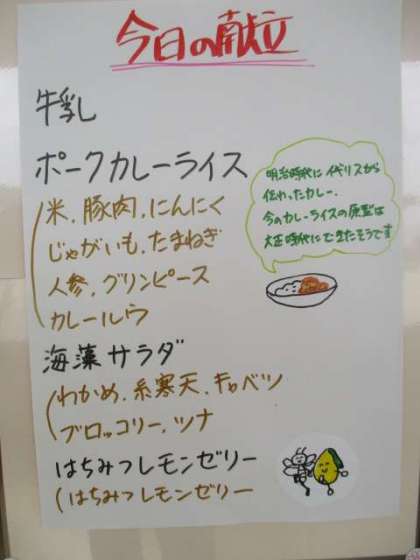 今日の献立
牛乳
ポークカレーライス
明治時代にイギリスから
伝わったカレー、
今のカレーライスの原型は
大正時代にできたそうです
(米、豚肉、にんにく
じゃがいも、たまねぎ
人参、グリンピース
カレールウ
海藻サラダ
(わかめ、糸寒天、キャベツ
ブロッコリー、ツナ
はちみつレモンゼリー
(はちみつレモンゼリー